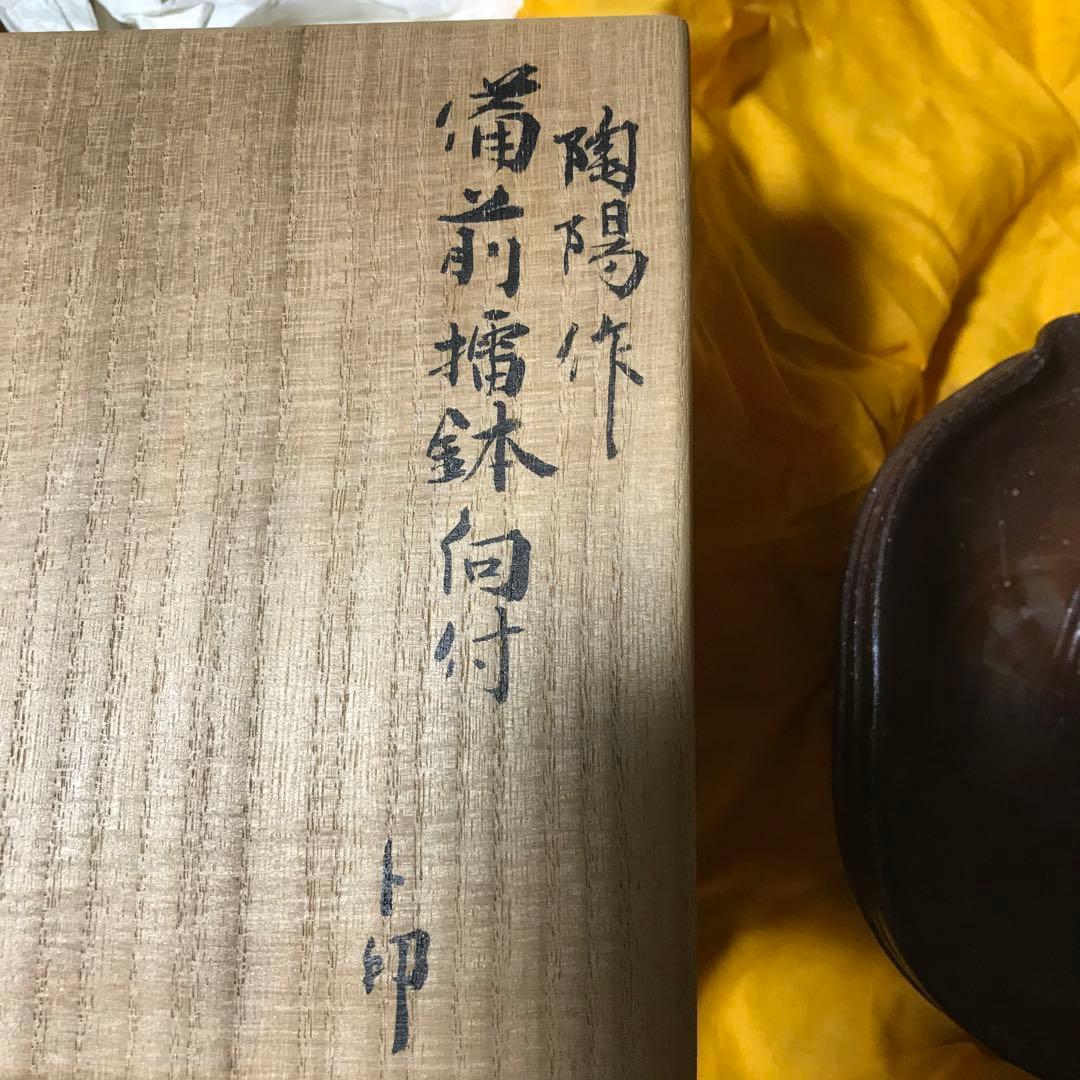 陶陽作
備前擂鉢向付
ト印